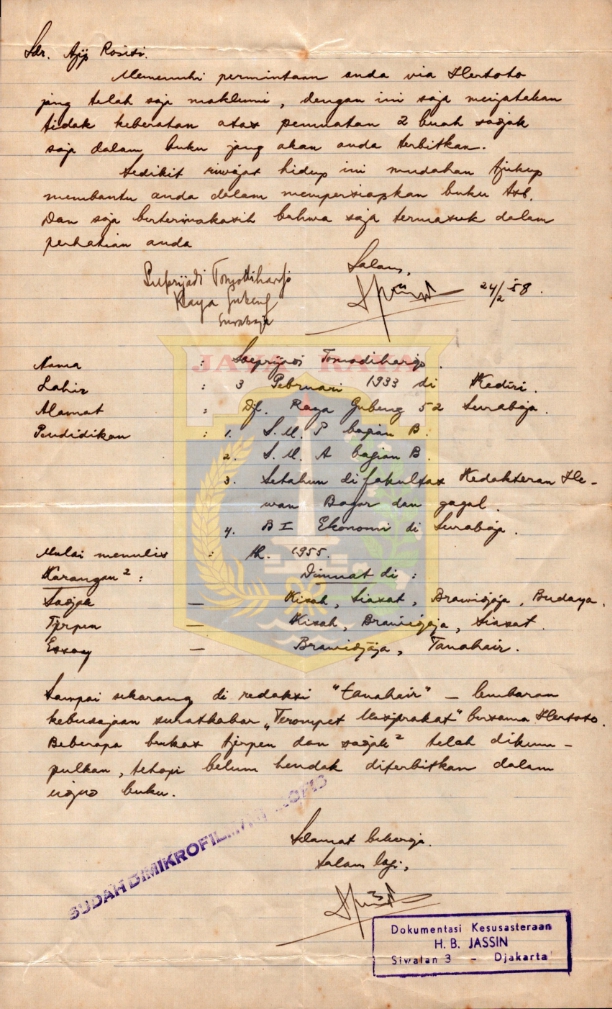 Sdr. Ajip Rosidi.
Memenuhi permintaan anda via Hertoto
jang telah saja maklumi, dengan ini saja menjatakan
tidak keberatan atas pemuatan 2 buah sadjak
saja dalam buku jang akan anda terbitkan.
Sedikit riwajat hidup ini mudahan tjukup
membantu anda dalam mempersiapkan buku tsb.
Dan saja berterimakasih bahwa saja termasuk dalam
perhatian anda
Salam,
Suprijadi Tomodihardjo
Raya Gubeng
Surabaja
24/2 '58.
JAYA RAYA
Nama : Soeprijadi Tomodihardjo.
Lahir : 3 Pebruari 1933 di Kediri.
Alamat : Dj. Raya Gubeng 52 Surabaja.
Pendidikan : 1. S.M.P bagian B.
2. S.M.A bagian B.
3. Setahun di fakultas Kedokteran He-
wan Bogor dan gagal.
4. B I Ekonomi di Surabaja.
Mulai menulis : th. 1955.
Karangan² : Dimuat di :
Sadjak — Kisah, Siasat, Brawidjaja, Budaya.
Tjerpen — Kisah, Brawidjaja, Siasat.
Essay — Brawidjaja, Tanahair.
Sampai sekarang di redaksi "tanahair" — lembaran
kebudajaan suratkabar „Terompet Masjarakat" bersama Hertoto.
Beberapa berkas tjerpen dan sadjak² telah dikum-
pulkan, tetapi belum hendak diterbitkan dalam
udjud buku.
SUDAH DIMIKROFILM
Selamat bekerdja.
Salam lagi,
Dokumentasi Kesusasteraan
H. B. JASSIN
Siwalan 3 - Djakarta